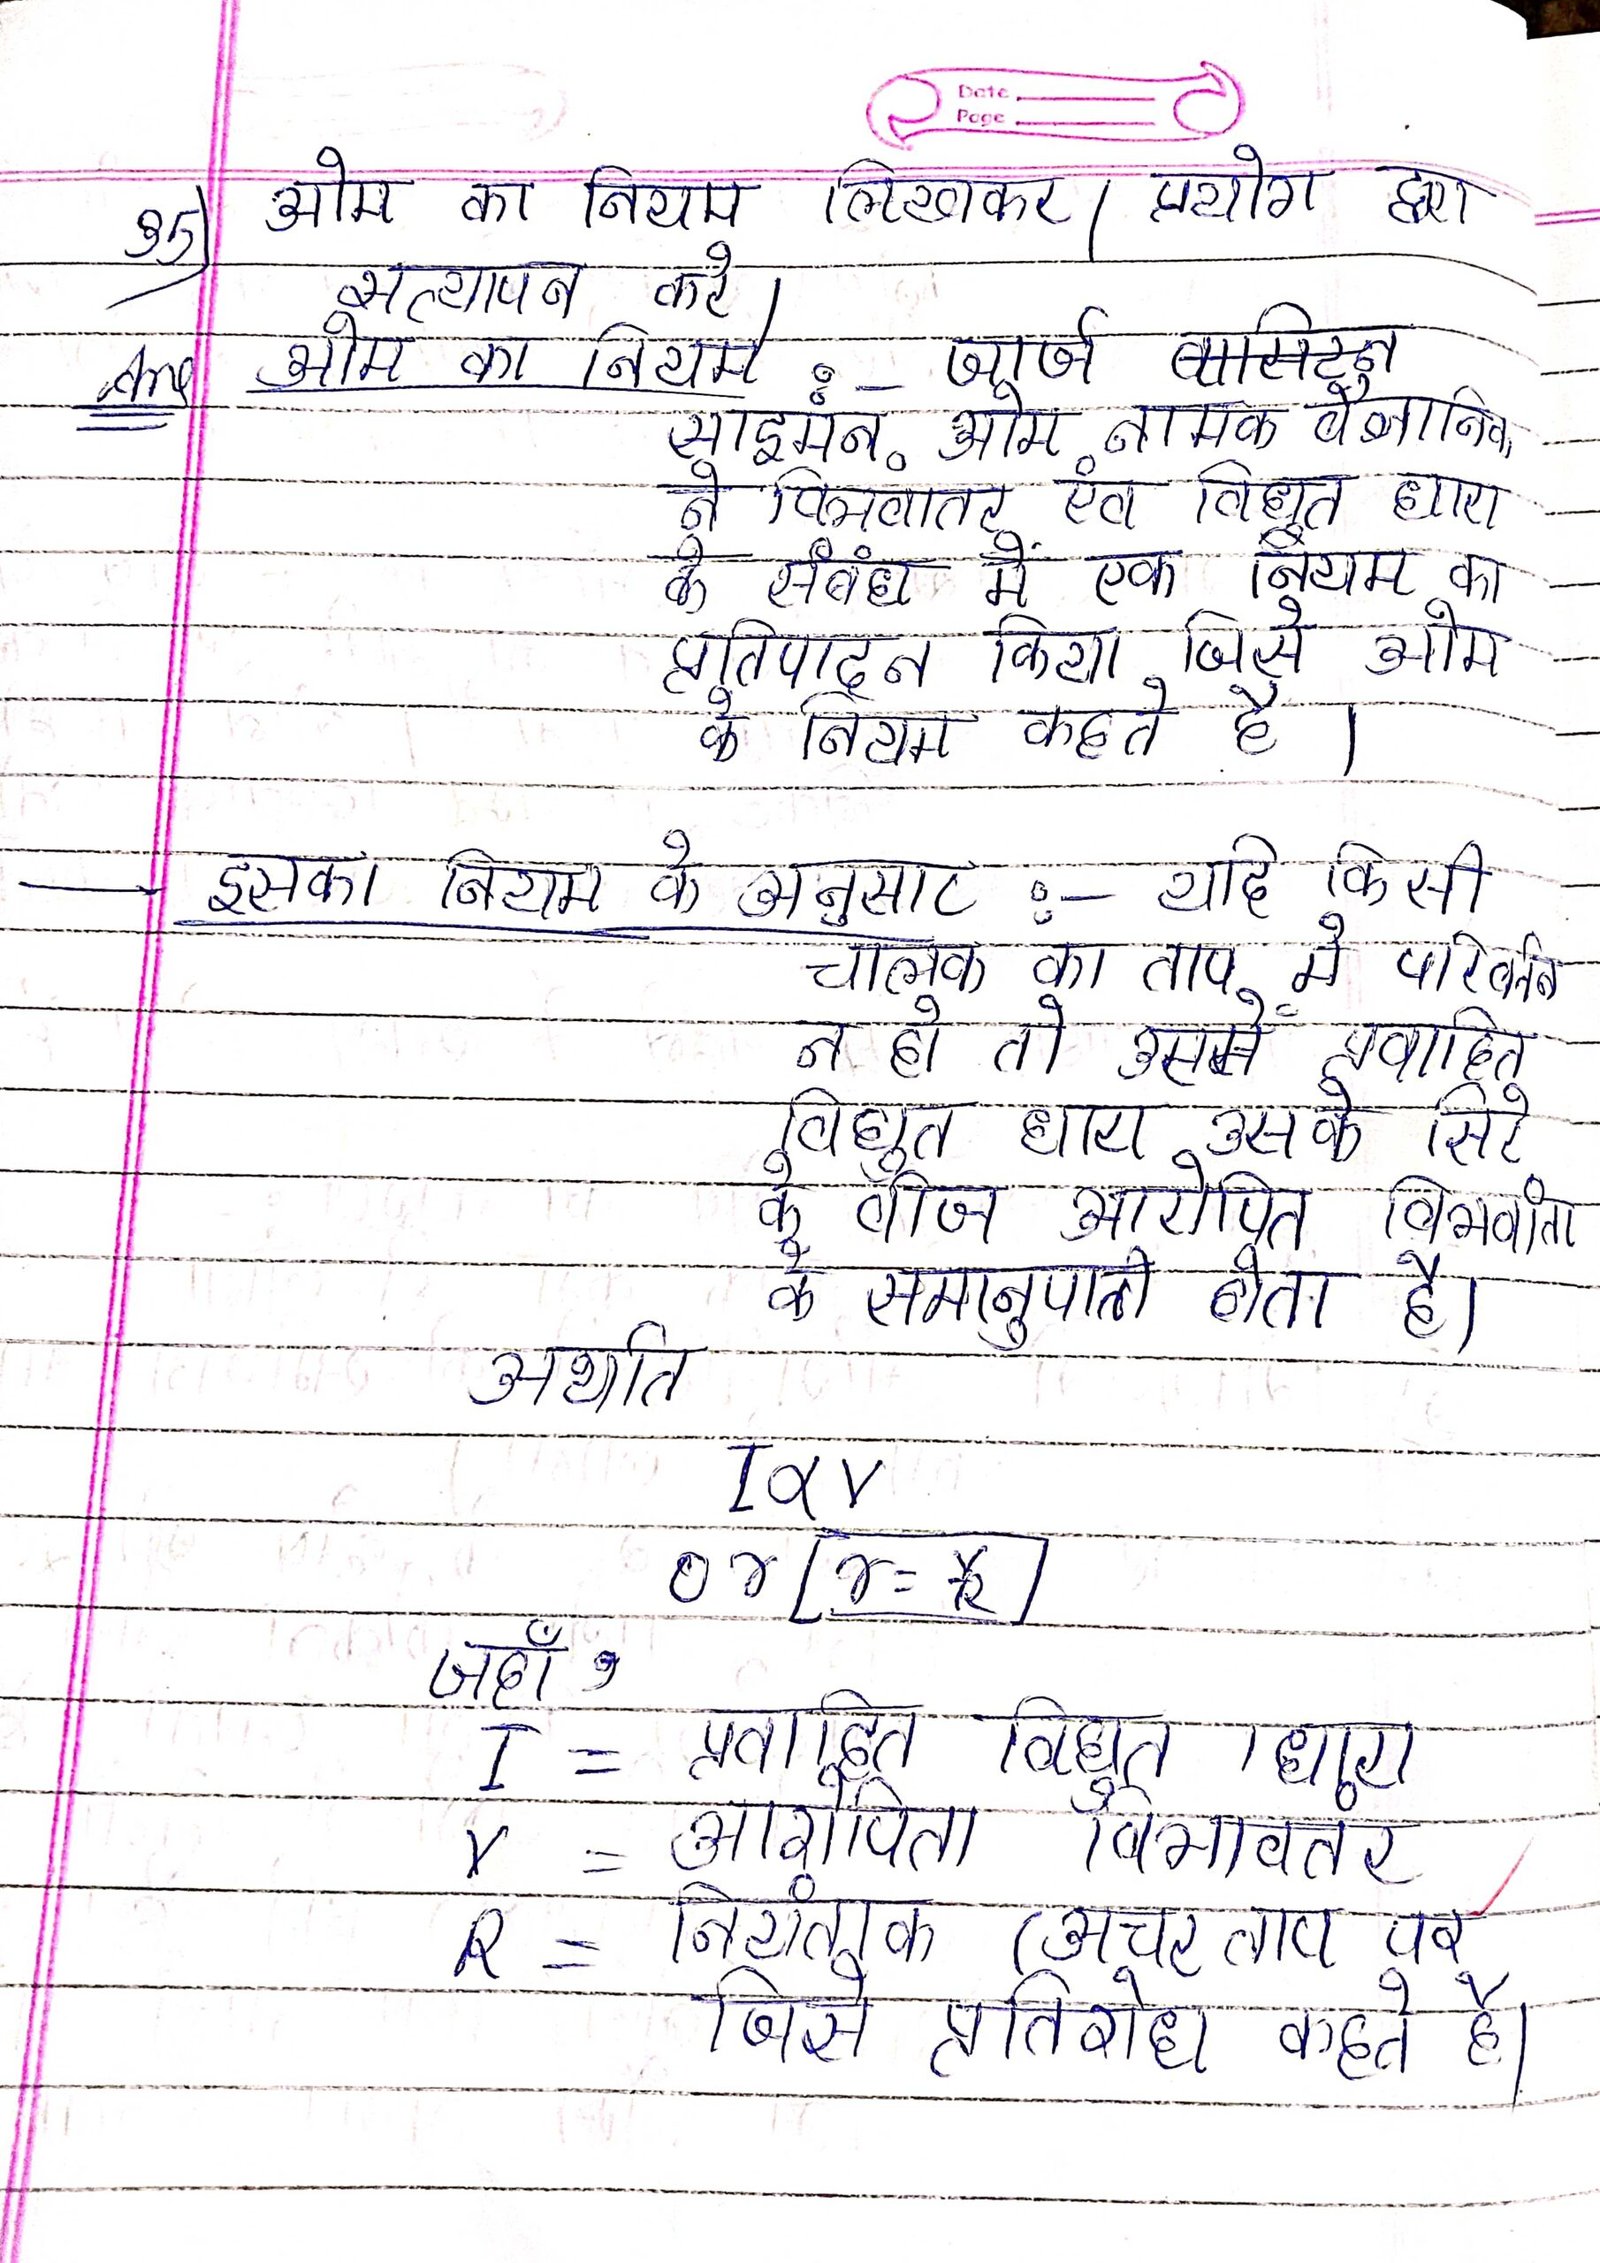 Date
Page
35) ओम का नियम लिखकर। प्रयोग द्वारा
सत्यापन करे।
Ans ओम का नियम :- जार्ज
साइमन ओम नामक वैज्ञानिक
ने विभवातर एंव विधुत धारा
के संबंध में एक नियम का
प्रतिपादन किया जिसे ओम
के नियम कहते है ।
इसका नियम के अनुसार :- यदि किसी
चालक का ताप में परिवर्तन
न हो तो उसमें प्रवाहित
विधुत धारा उसके सिरे
के वीज आरोपित विभवांता
के समानुपाती होता है।
अर्थात
I α V
or
जहाँ,
I = प्रवाहित विधुत धारा
V = आरोपिता विभावतंर
R = नियंतांक (अचर ताप पर
जिसे प्रतिरोध कहते है।